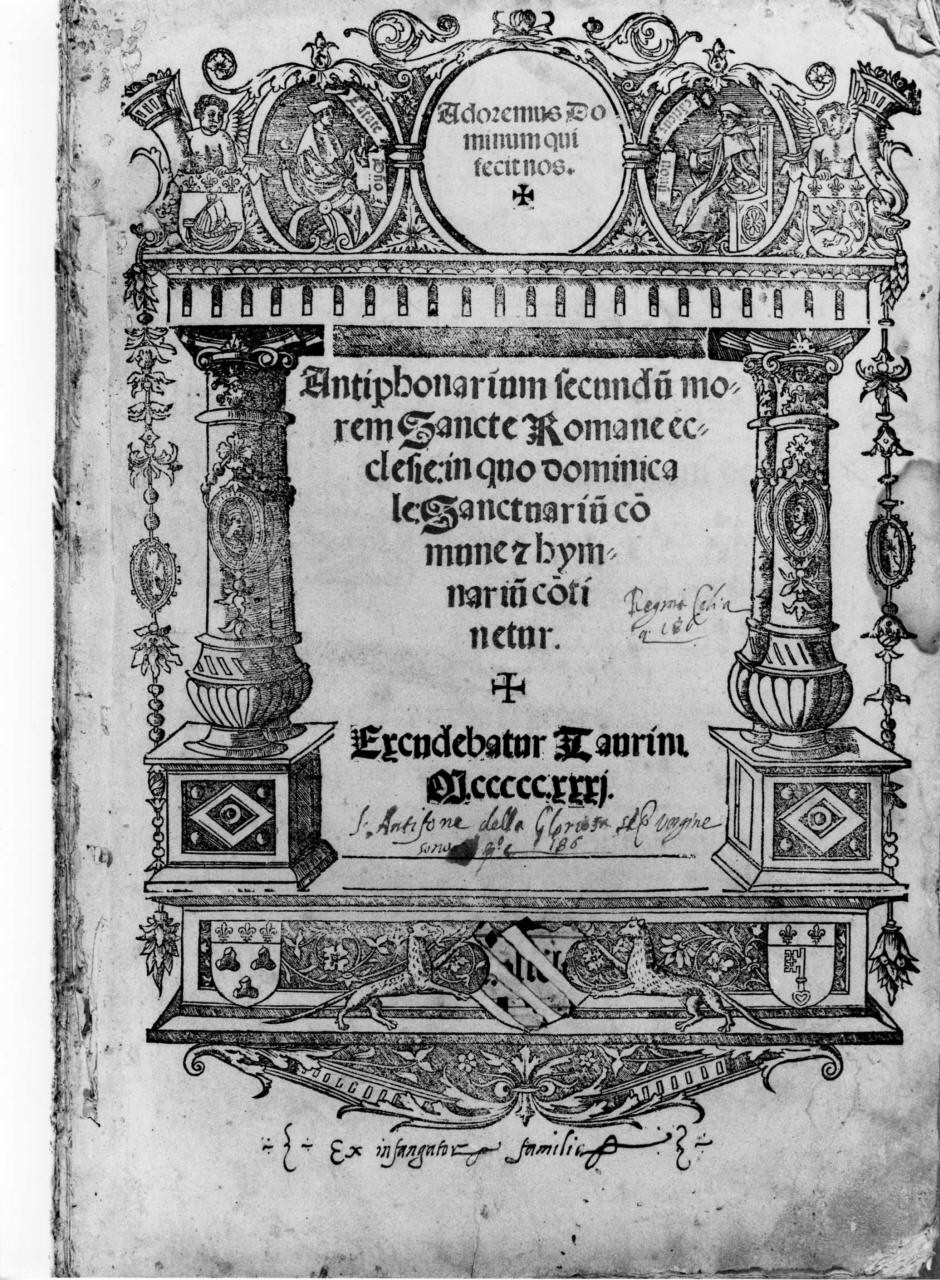 Adoremus Do
minum qui
fecit nos.
✠
Antiphonarium secundū mo⸗
rem Sancte Romane ec⸗
clesie: in quo dominica
le: Sanctuariū cō
mune ⁊ hym⸗
nariū cōti
netur.
✠
Excudebatur Taurini.
M.ccccc.xxxj.
Antifone della Gloriosa Vergine
186
Ex infangator familie